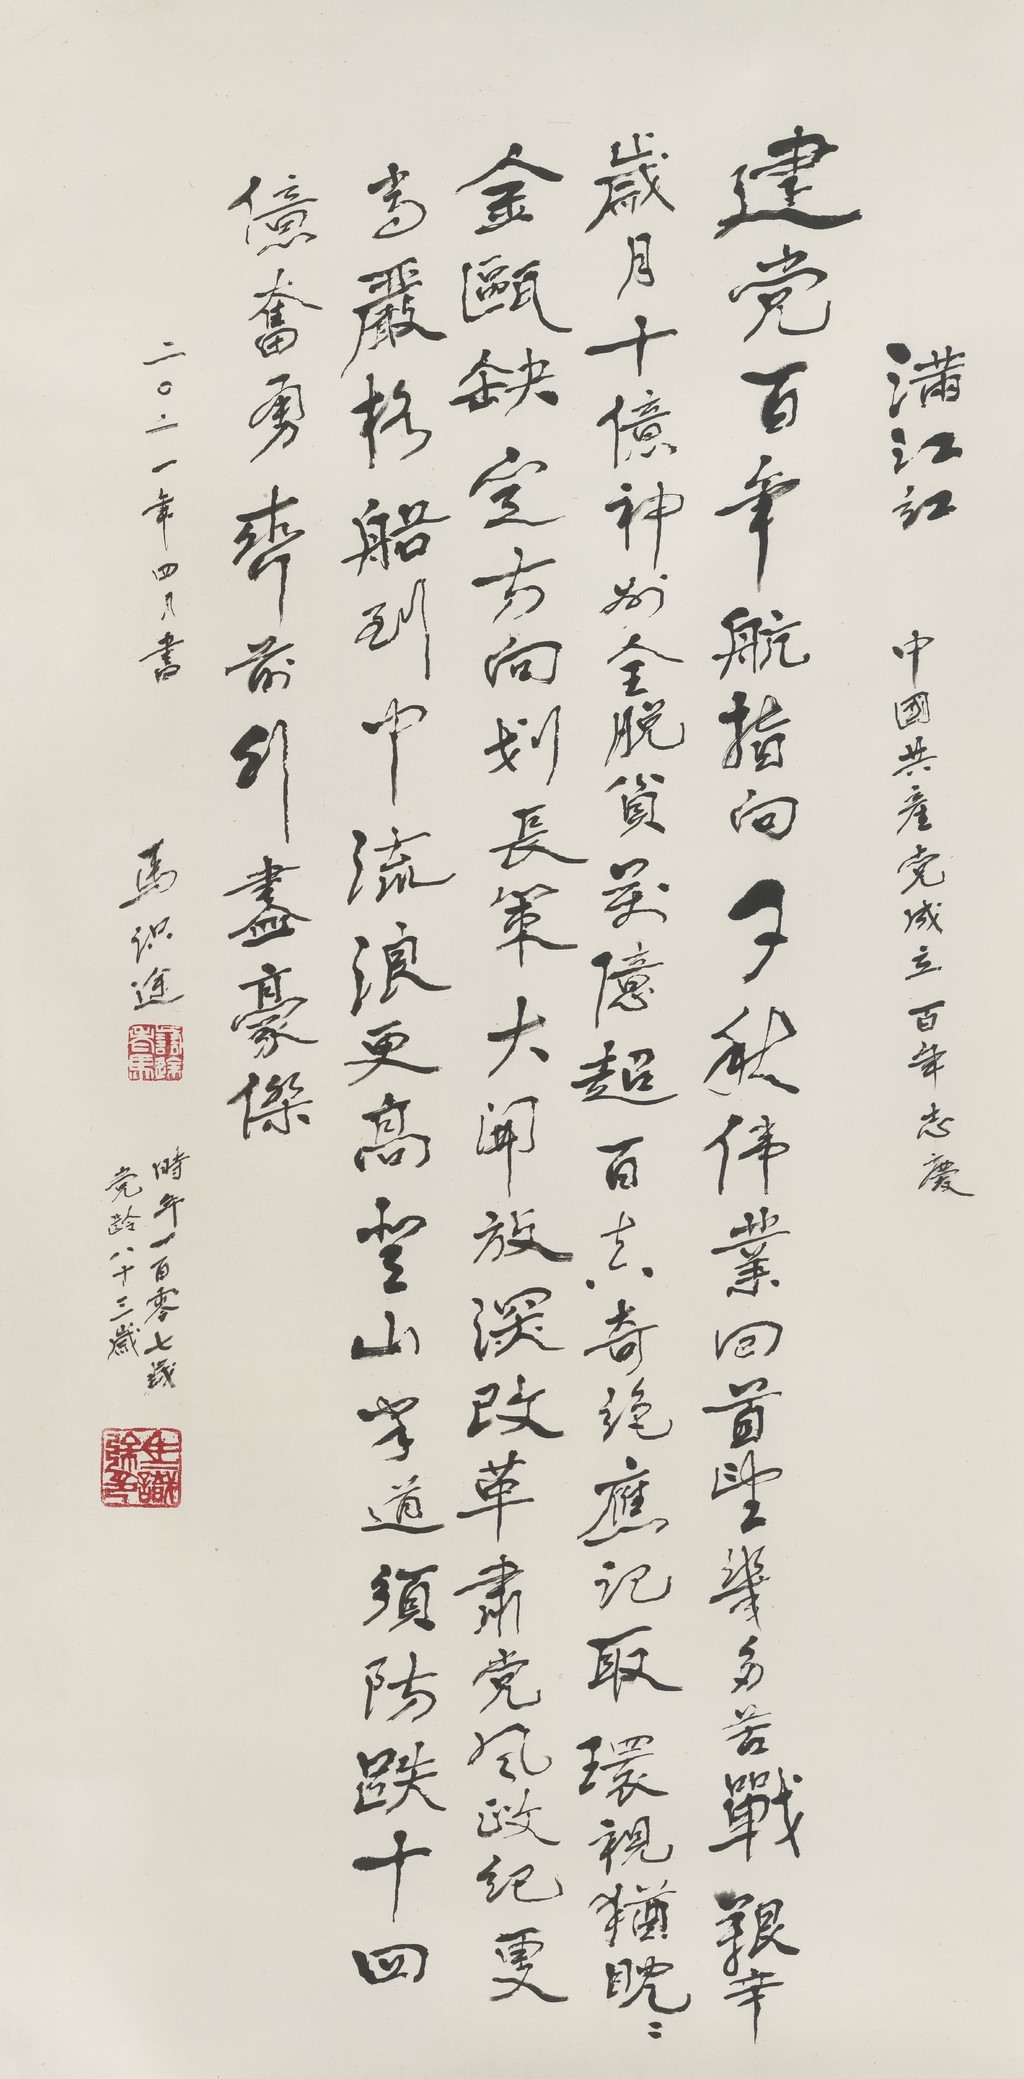 满江红 中國共産党成立百年志慶
建党百年航指向千秋伟業回首望幾多苦戰艱辛
歲月十億神州全脱貧萬億超百真奇绝應记取環視猶眈〻
金甌缺定方向划長策大開放深改革肅党风政纪更
当嚴格船到中流浪更高登山半道須防跌十四
億奮勇齊前列盡豪傑
二〇二一年四月書 馬识途
時年一百零七歲
党龄八十三歲